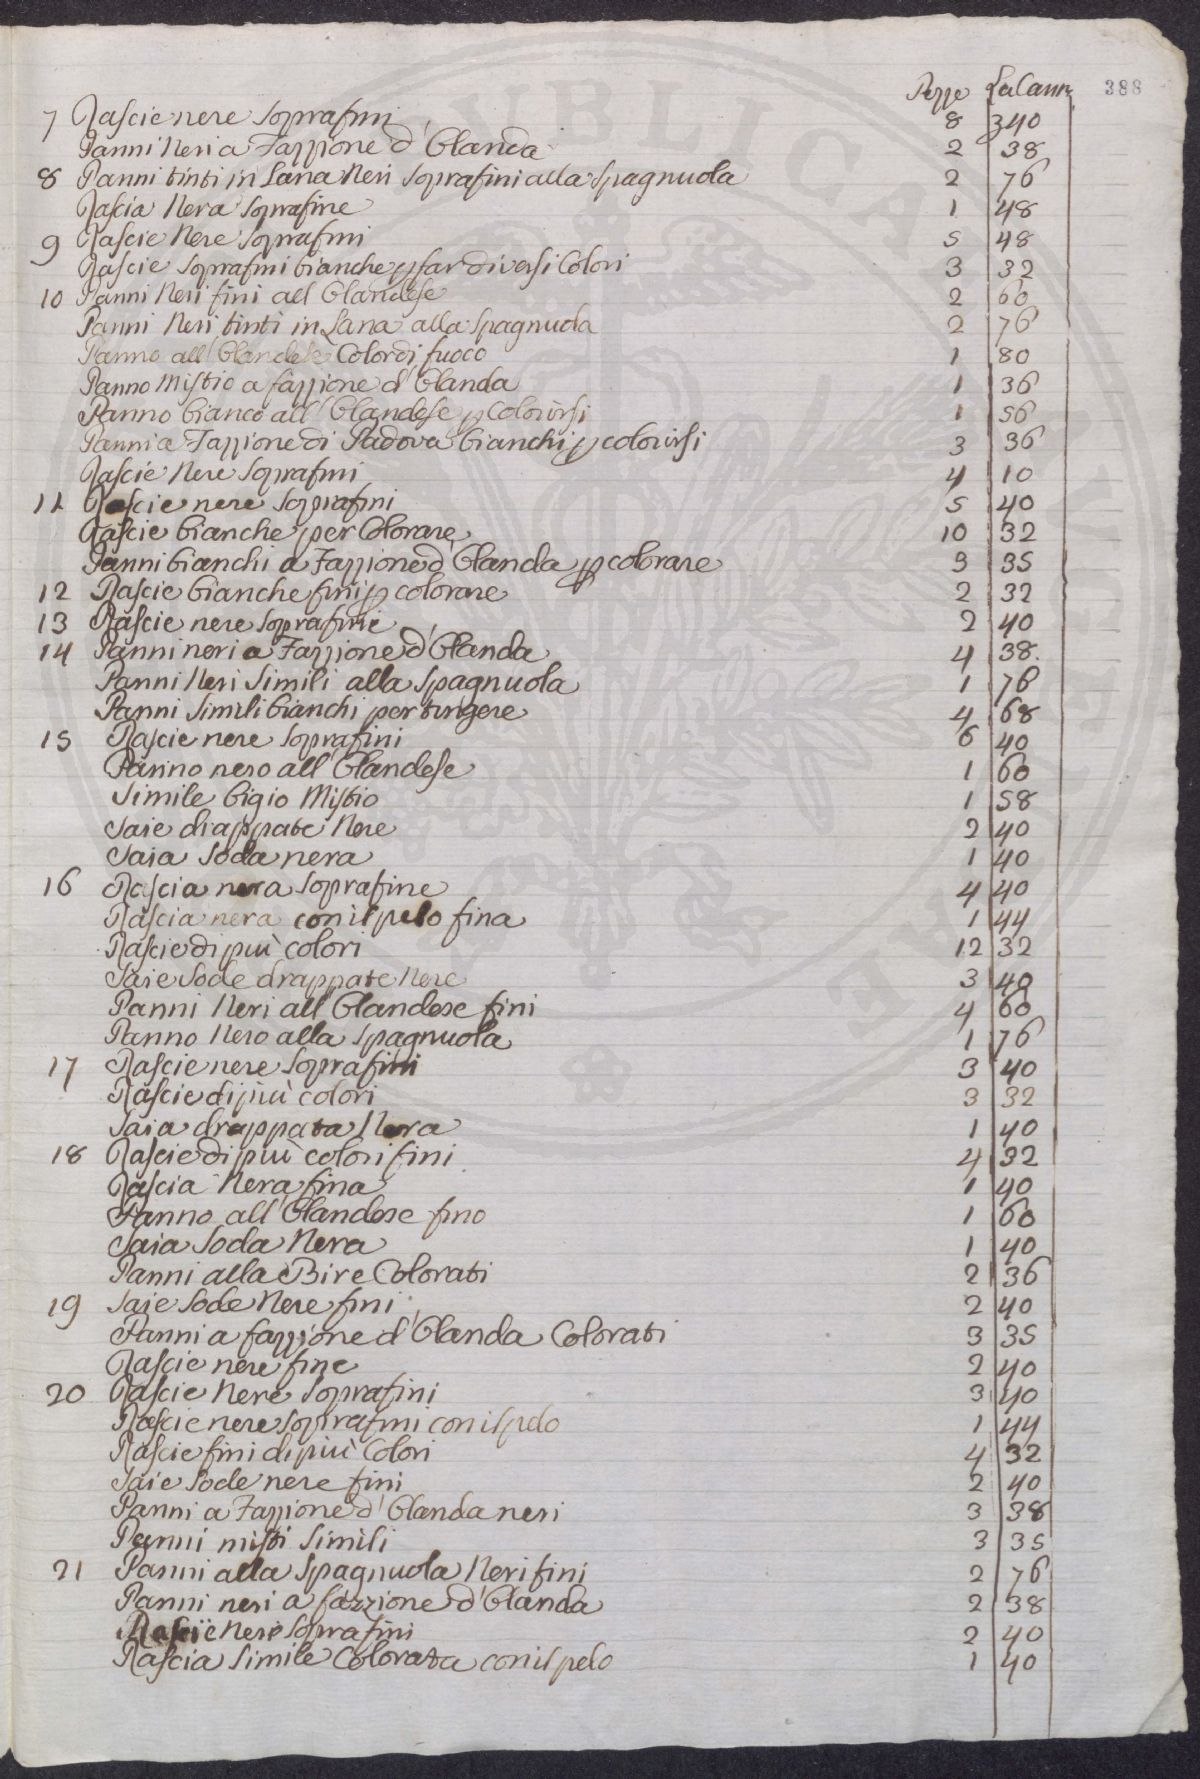 Pezze La Canna 388
7 Rascie nere soprafini 8 340
Panni Neri a Fazzione d'Olanda 2 38
8 Panni tinti in Lana Neri soprafini alla Spagnuola 2 76
Rascia Nera soprafine 1 48
9 Rascie Nere soprafini 5 48
Rascie soprafini bianche p far diversi Colori 3 32
10 Panni Neri fini all'Olandese 2 60
Panni Neri tinti in Lana alla Spagnuola 2 76
Panno all'Olandese Color di fuoco 1 80
Panno Mistio a fazzione d'Olanda 1 36
Panno bianco all'Olandese p Colorirsi 1 56
Panni a Fazzione di Padova bianchi p colorirsi 3 36
Rascie Nere soprafini 4 10
11 Rascie nere soprafini 5 40
Rascie bianche per Colorare 10 32
Panni bianchi a Fazzione d'Olanda p colorare 3 35
12 Rascie bianche fini p colorare 2 32
13 Rascie nere soprafine 2 40
14 Panni neri a Fazzione d'Olanda 4 38.
Panni Neri Simili alla Spagnuola 1 76
Panni Simili bianchi per tingere 4 68
15 Rascie nere soprafini 6 40
Panno nero all'Olandese 1 60
Simile bigio Mistio 1 58
Saie drappate Nere 2 40
Saia Soda nera 1 40
16 Rascia nera soprafine 4 40
Rascia nera con il pelo fina 1 44
Rascie di più colori 12 32
Saie Sode drappate Nere 3 40
Panni Neri all'Olandese fini 4 60
Panno Nero alla Spagnuola 1 76
17 Rascie nere soprafini 3 40
Rascie di più colori 3 32
Saia drappata Nera 1 40
18 Rascie di più colori fini 4 32
Rascia Nera fina 1 40
Panno all'Olandese fino 1 60
Saia Soda Nera 1 40
Panni alla Bire Colorati 2 36
19 Saie Sode Nere fini 2 40
Panni a fazzione d'Olanda Colorati 3 35
Rascie nere fine 2 40
20 Rascie Nere soprafini 3 40
Rascie nere soprafini con il pelo 1 44
Rascie fini di più Colori 4 32
Saie Sode nere fini 2 40
Panni a Fazzione d'Olanda neri 3 38
Panni misti Simili 3 35
21 Panni alla Spagnuola Neri fini 2 76
Panni neri a fazzione d'Olanda 2 38
Rascie Nere Soprafini 2 40
Rascia Simile Colorata con il pelo 1 40